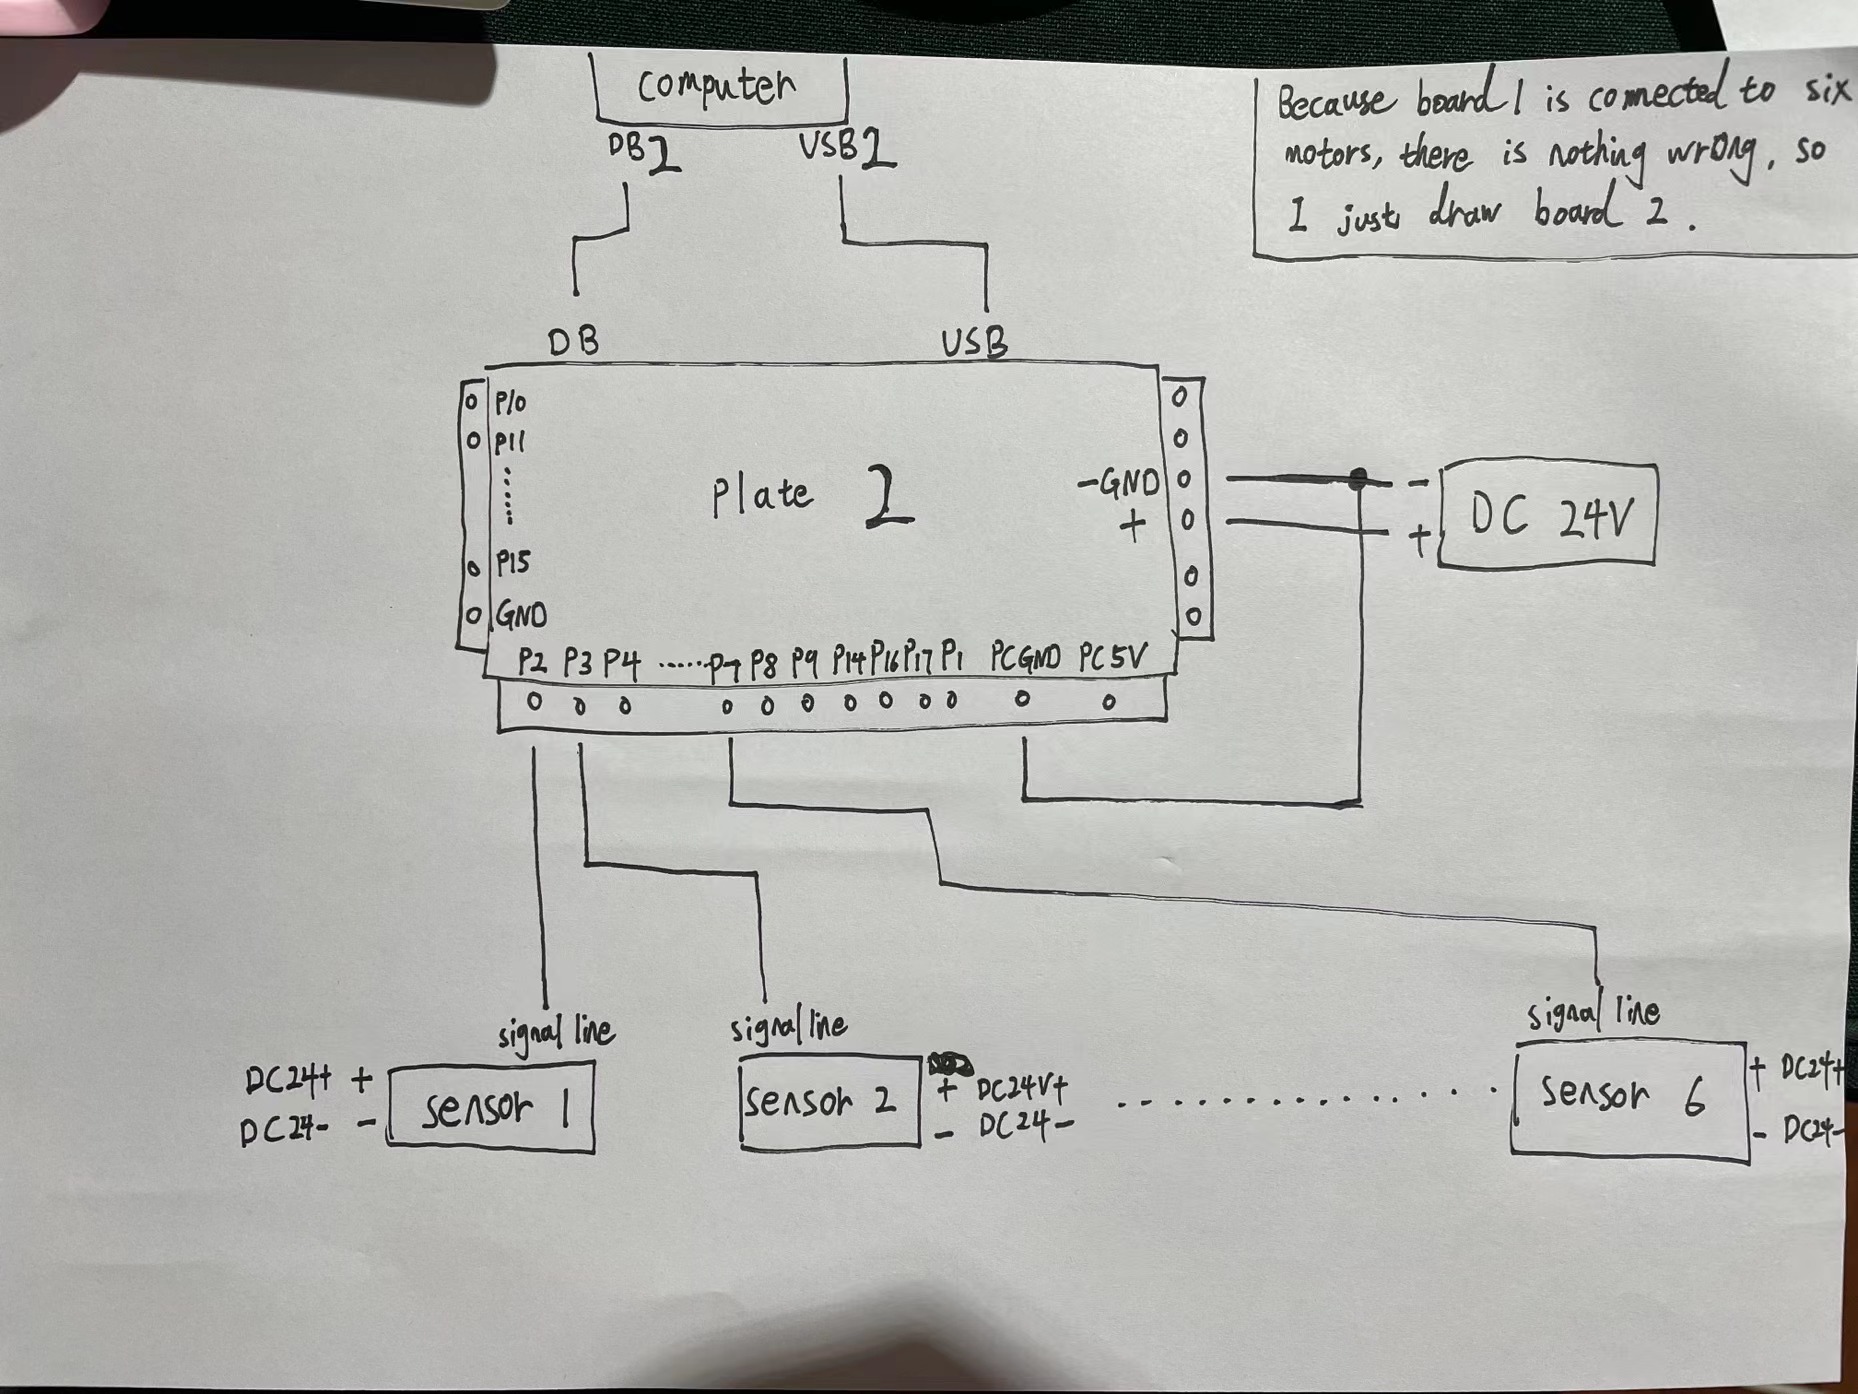 computer
DB2 USB2
Because board 1 is connected to six
motors, there is nothing wrong, so
I just draw board 2.
DB USB
P10
P11
Plate 2
-GND
+
- DC 24V
+
P15
GND
P2 P3 P4 ......P7 P8 P9 P14 P16 P17 P1 PCGND PC5V
signal line signal line signal line
DC24+ + sensor 1
DC24- -
sensor 2 + DC24V+
- DC24-
sensor 6 + DC24+
- DC24-